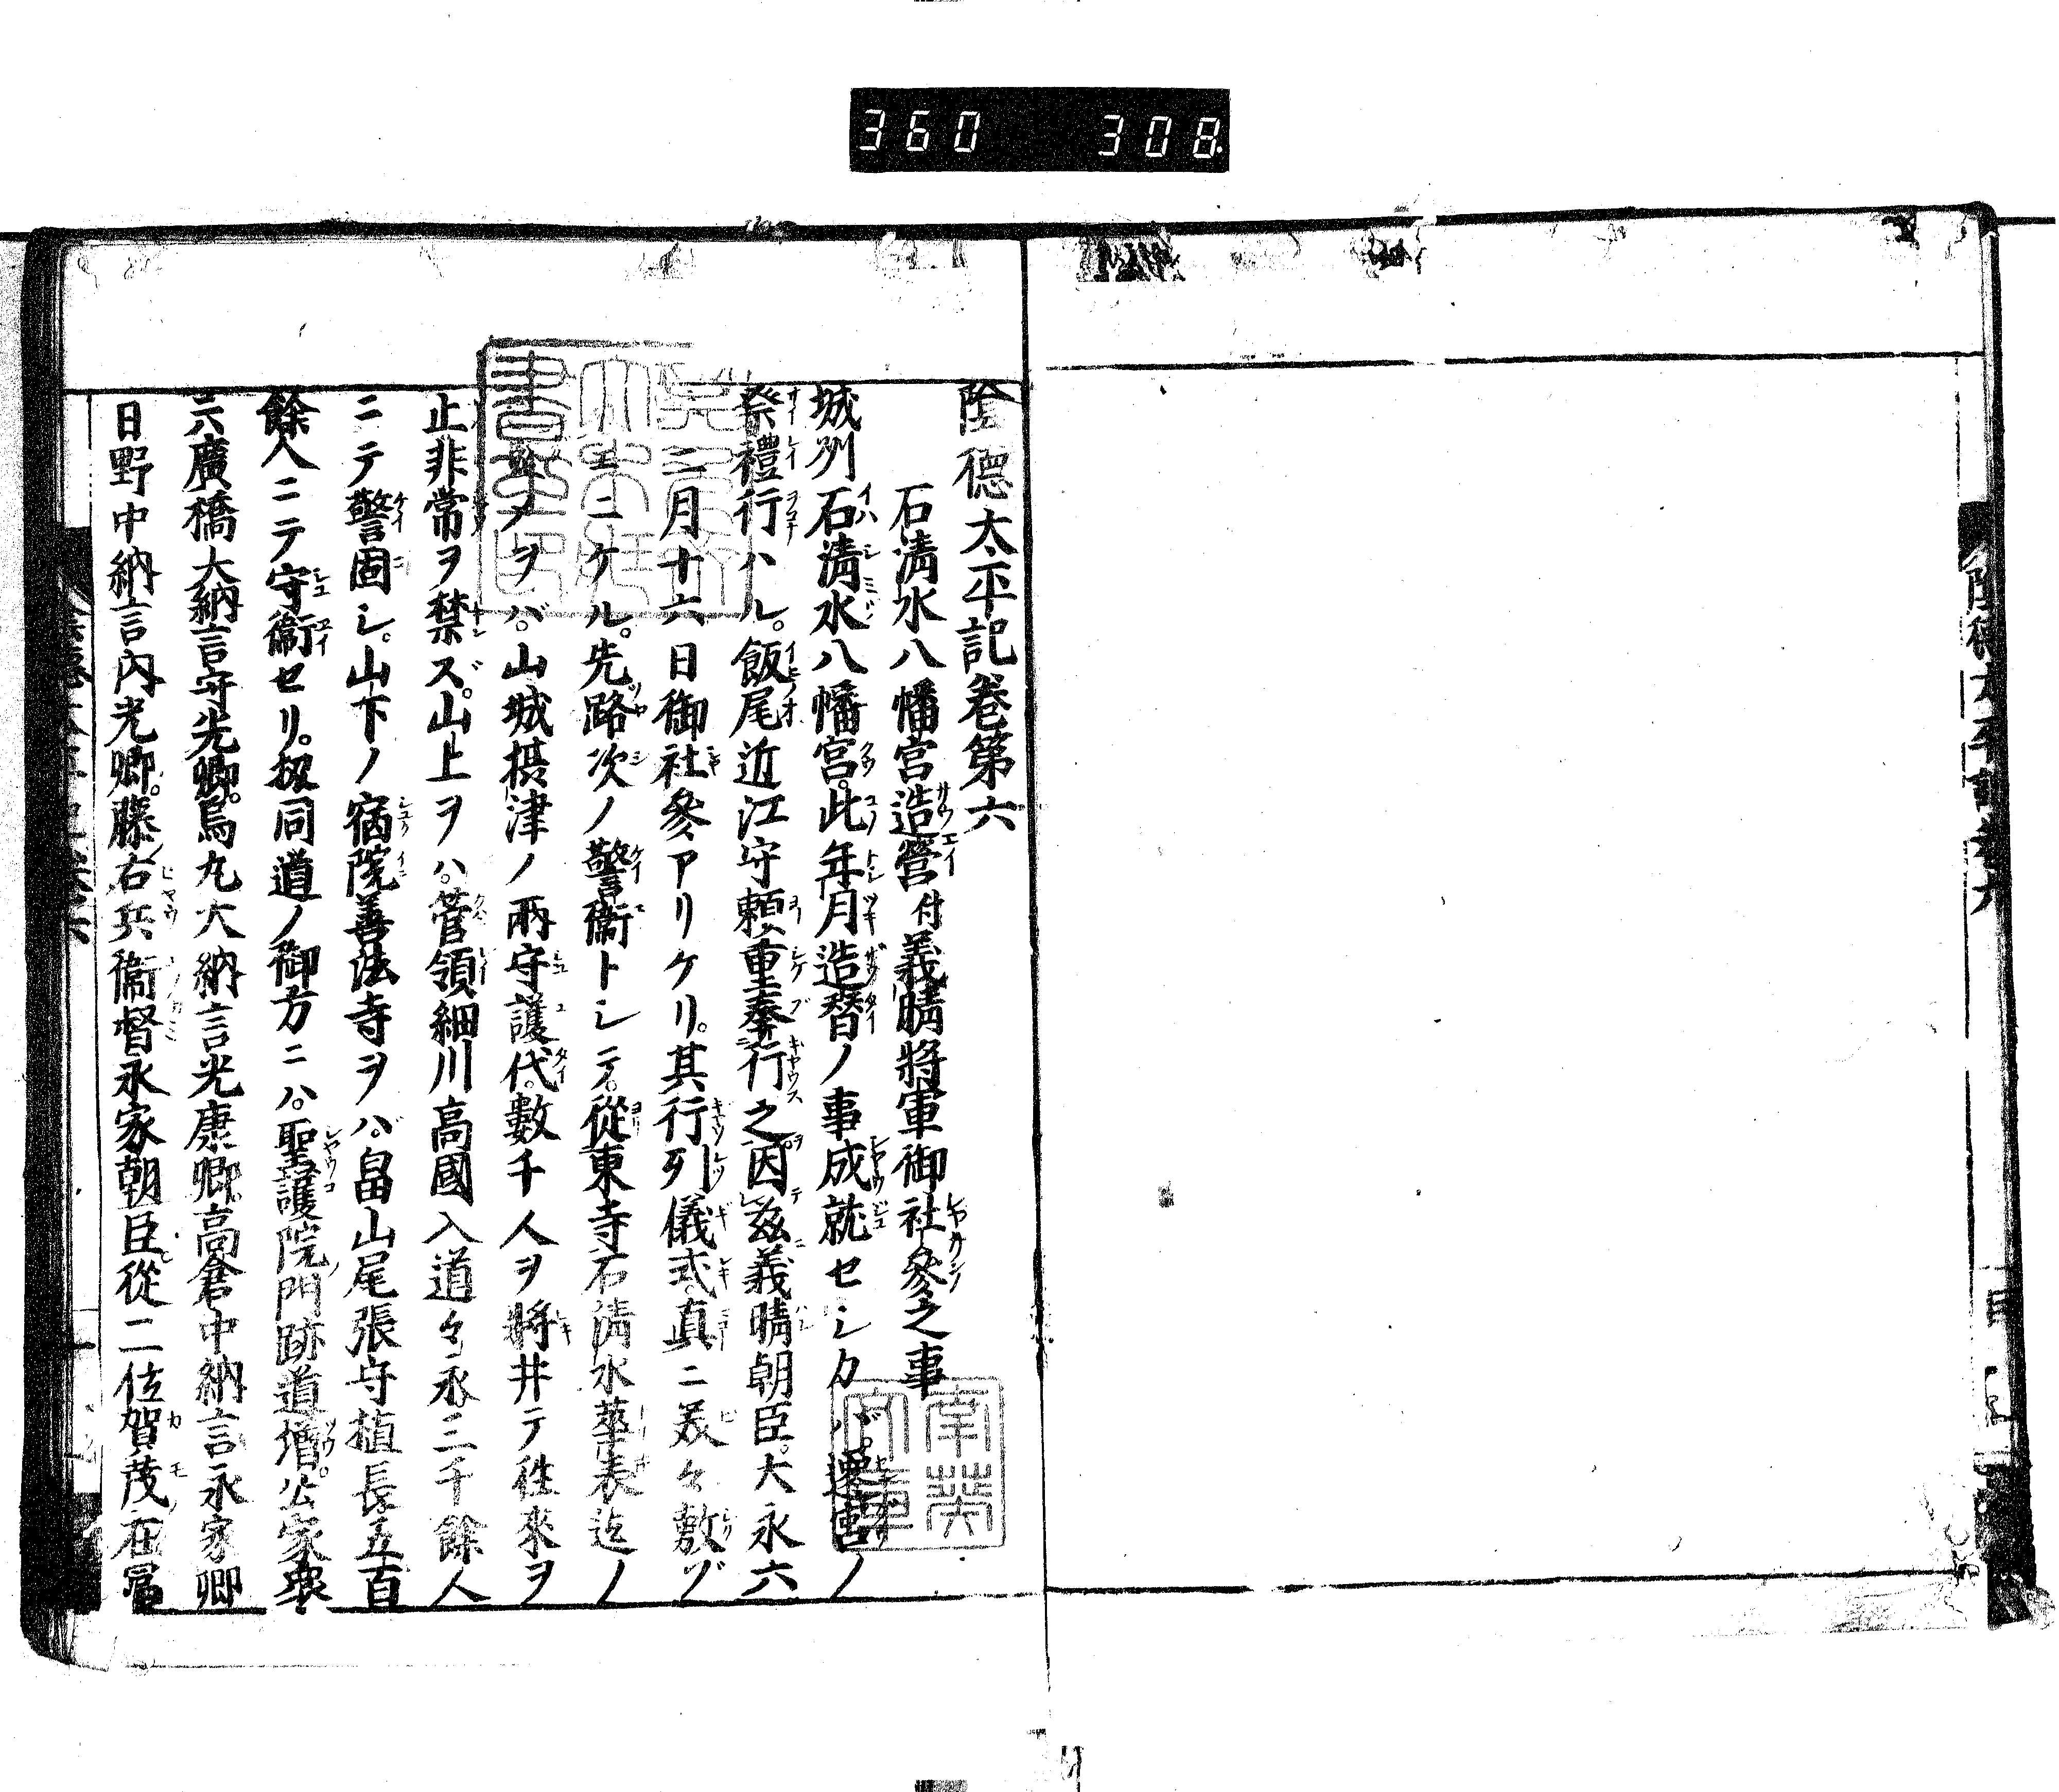 360 308
陰德太平記卷第六
石淸水八幡宮造營付義晴將軍御社參之事
城州石淸水八幡宮。此年月造替ノ事成就セシカバ。遷宮ノ
祭禮行ハル。飯尾近江守賴重奉行之因玆義晴朝臣。大永六
二月十六日御社參アリケリ。其行列儀式眞ニ美々敷ゾ
ニケル。先路次ノ警衞トシテ。從東寺石淸水華表迄ノ
ヲバ。山城摂津ノ兩守護代。數千人ヲ將井テ徃來ヲ
止非常ヲ禁ズ。山上ヲハ。管領細川高國入道々永三千餘人
ニテ警固シ。山下ノ宿院善法寺ヲバ。畠山尾張守植長五百
餘人ニテ守衞セリ。扨同道ノ御方ニハ。聖護院門跡道增。公家衆
ニハ廣橋大納言守光卿。烏丸大納言光康卿高倉中納言永家卿
日野中納言內光卿。藤右兵衞督永家朝臣從二位賀茂在冨